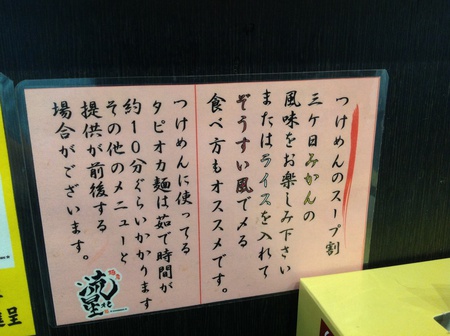 つけめんのスープ割
三ケ日みかんの
風味をお楽しみ下さい
またはライスを入れて
ぞうすい風で〆る
食べ方もオススメです。
つけめんに使ってる
タピオカ麺は茹で時間が
約10分ぐらいかかります
その他のメニューと
提供が前後する
場合がございます。
流星
呈